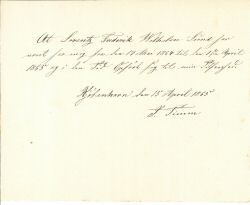 At Lauritz Frederik Wilhelm Lund har
været hos mig fra den 1ste Mai 1864 til den 15de April
1865 og i den Tid opført sig til min Tilfredshed
Kjöbenhavn den 15 April 1865
F. Timm